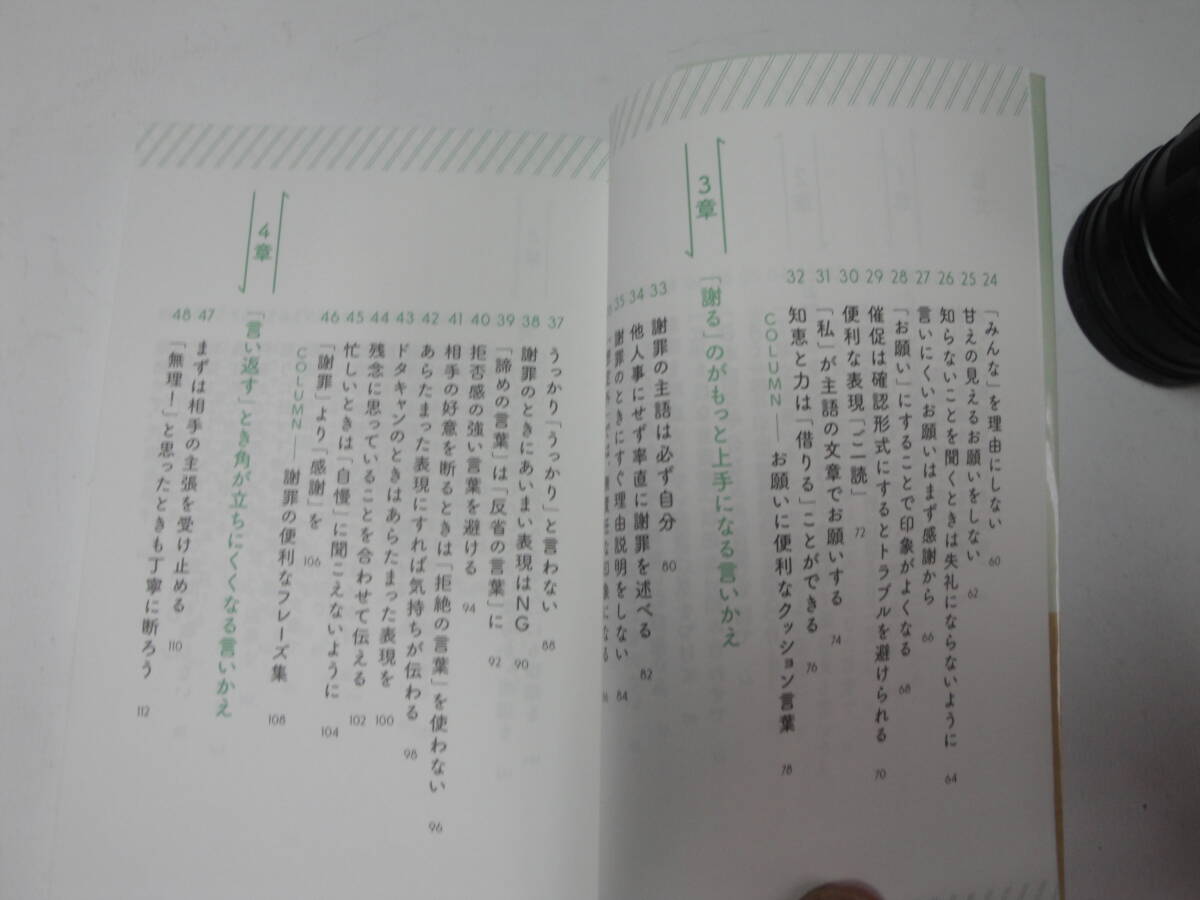 24 「みんな」を理由にしない 60
25 甘えの見えるお願いをしない 62
26 知らないことを聞くときは失礼にならないように 64
27 言いにくいお願いはまず感謝から 66
28 「お願い」にすることで印象がよくなる 68
29 催促は確認形式にするとトラブルを避けられる 70
30 便利な表現「ご一読」 72
31 「私」が主語の文章でお願いする 74
32 知恵と力は「借りる」ことができる 76
COLUMN── お願いに便利なクッション言葉 78
3章 「謝る」のがもっと上手になる言いかえ
33 謝罪の主語は必ず自分 80
34 他人事にせず率直に謝罪を述べる 82
35 謝罪のときにすぐ理由説明をしない 84
37 うっかり「うっかり」と言わない 88
38 謝罪のときにあいまい表現はNG 90
39 「諦めの言葉」は「反省の言葉」に 92
40 拒否感の強い言葉を避ける 94
41 相手の好意を断るときは「拒絶の言葉」を使わない 96
42 あらたまった表現にすれば気持ちが伝わる 98
43 ドタキャンのときはあらたまった表現を 100
44 残念に思っていることを合わせて伝える 102
45 忙しいときは「自慢」に聞こえないように 104
46 「謝罪」より「感謝」を 106
COLUMN── 謝罪の便利なフレーズ集 108
4章 「言い返す」とき角が立ちにくくなる言いかえ
47 まずは相手の主張を受け止める 110
48 「無理!」と思ったときも丁寧に断ろう 112